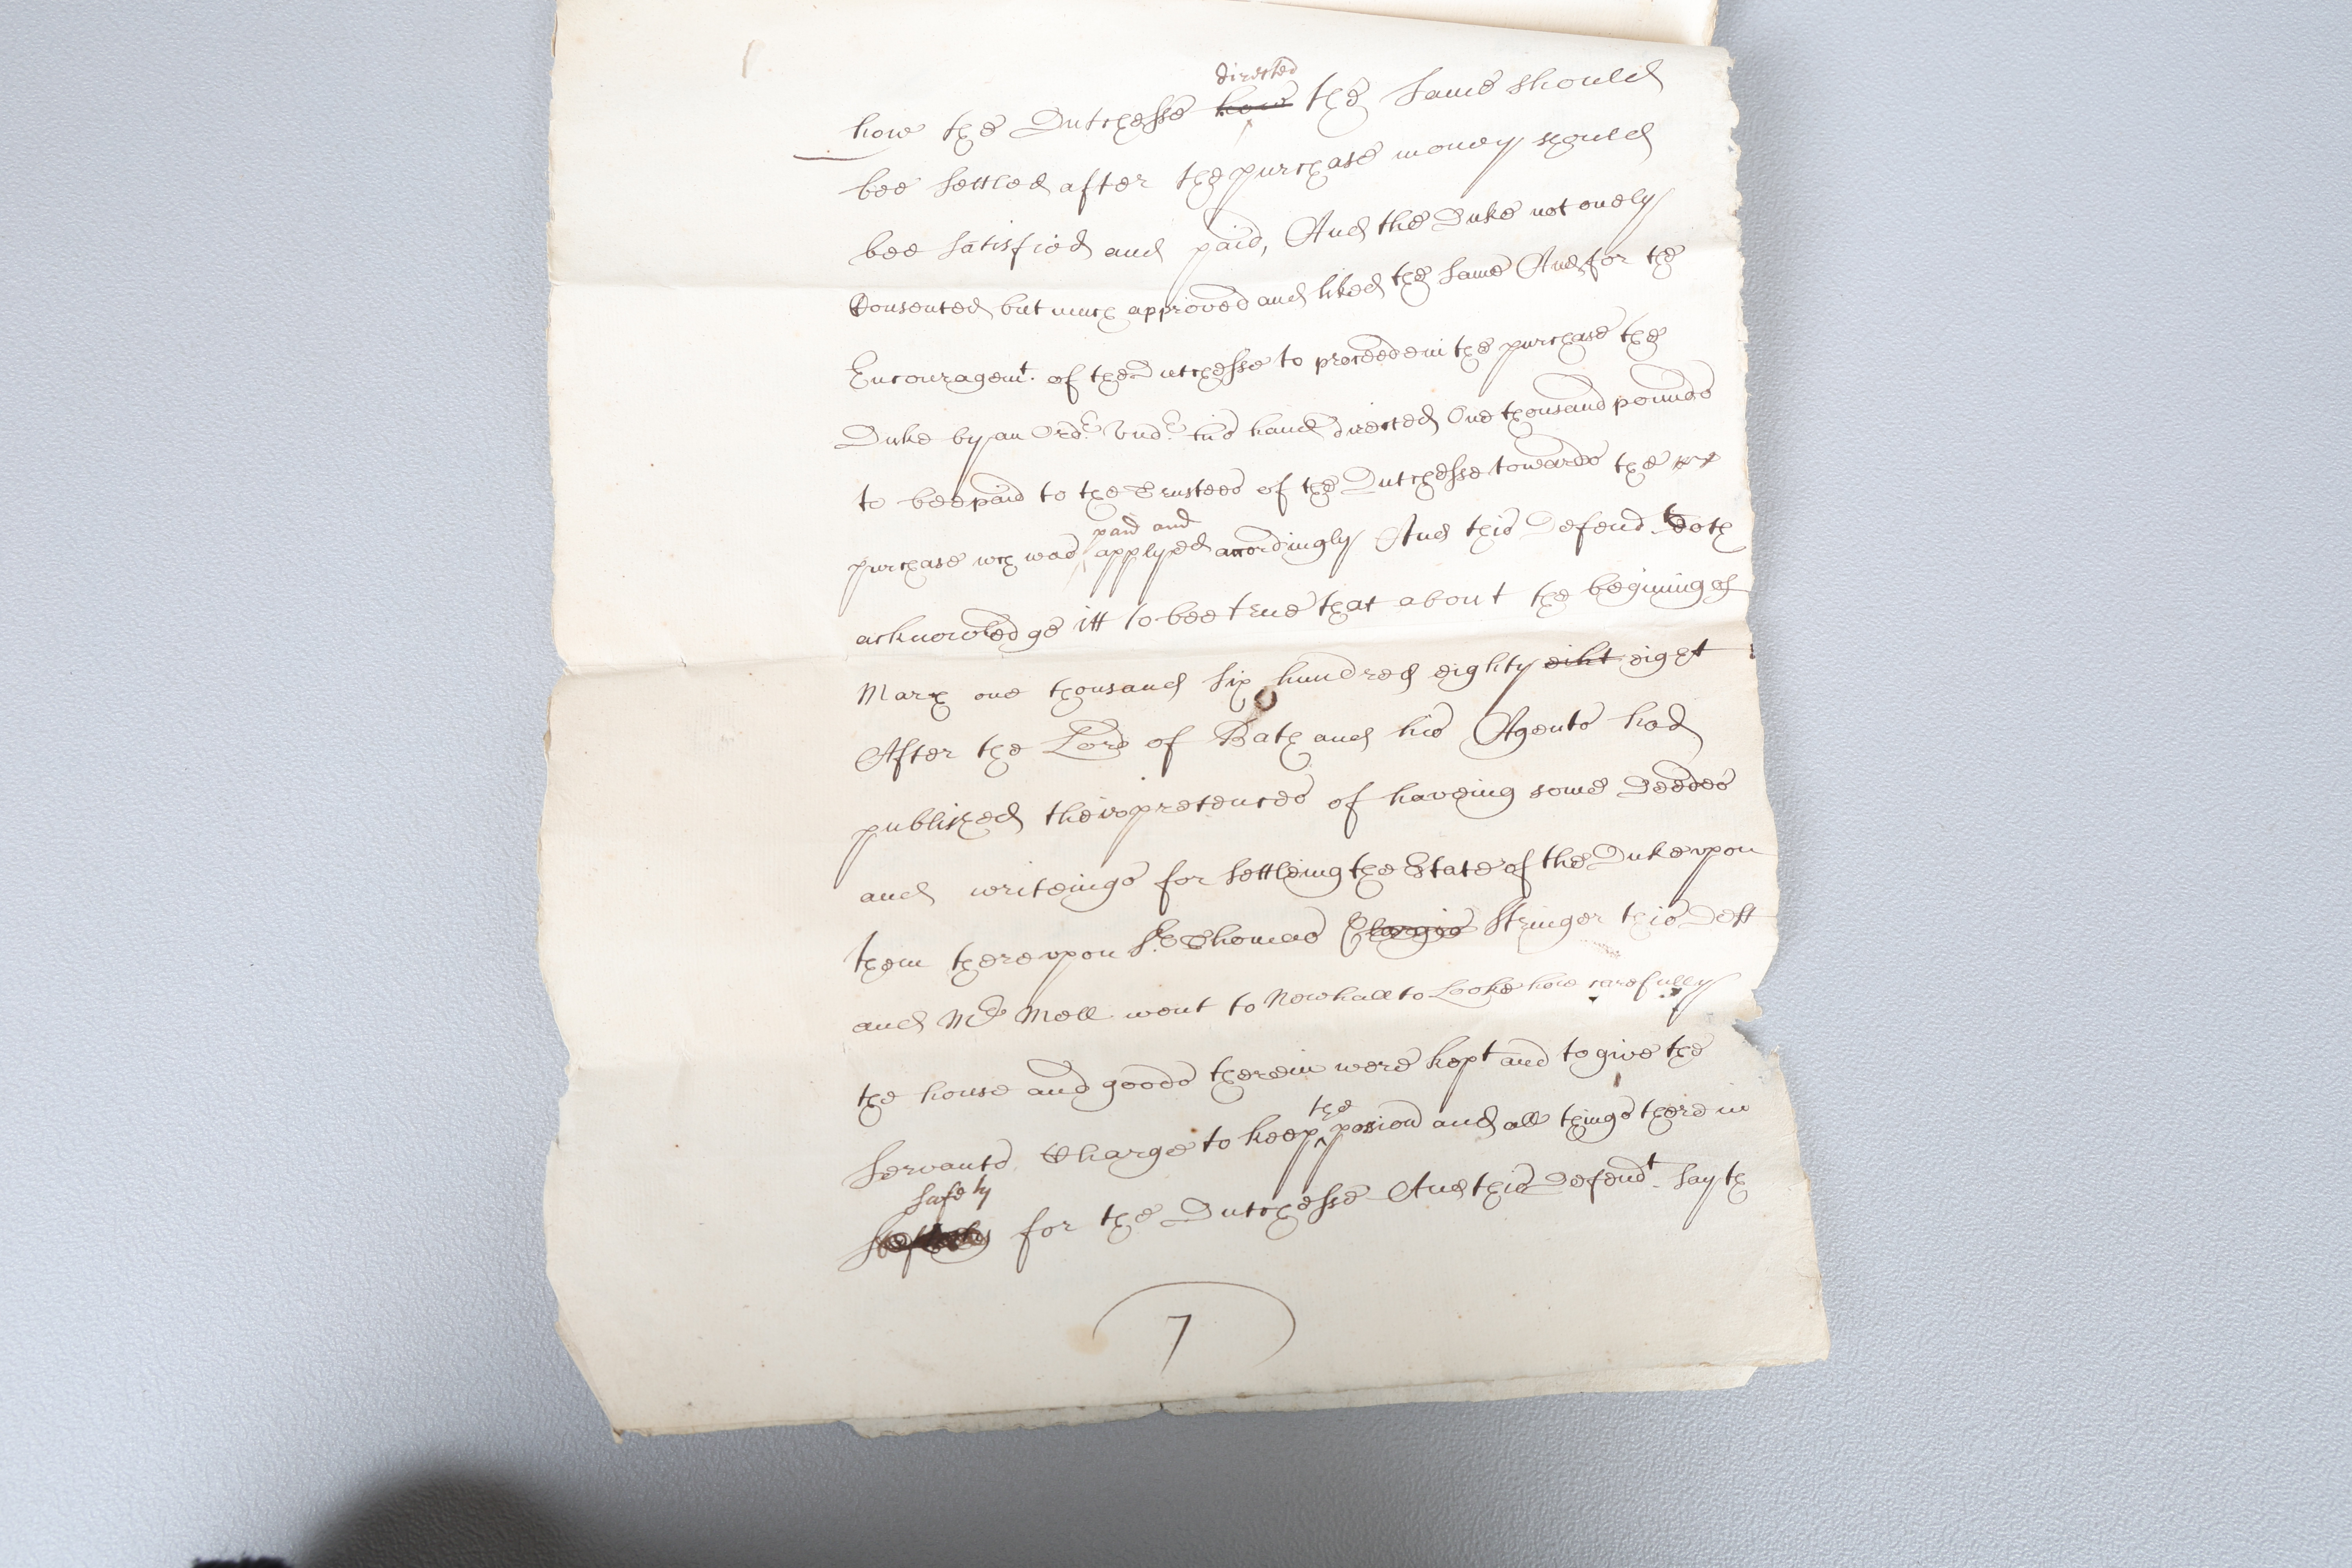 directed
how the Dutchesse how the same should
bee settled after the purchase money should
bee satisfied and paid, And the Duke not onely
Consented but much approved and liked the same And for the
Encouragemt. of the Dutchesse to proceede in the purchase the
Duke by an Ordr. undr. his hand directed One thousand pounds
to bee paid to the Trustees of the Dutchesse towards the
paid and
purchase wch was applyed accordingly And this Defendt. doth
acknowledge itt to bee true that about the begining of
March one thousand six hundred eighty eiht eight
After the Lord of Bath and his Agents had
published their pretences of haveing some Deedes
and writeings for settleing the Estate of the Duke upon
them thereupon Sr. Thomas Clargis Stringer this Deft
and Mr Mell went to Newhall to Looke how carefully
the house and goods therein were kept and to give the
the
Servants Charge to keep possion and all things therein
safely
for the Dutchesse And this Defendt. sayth
7